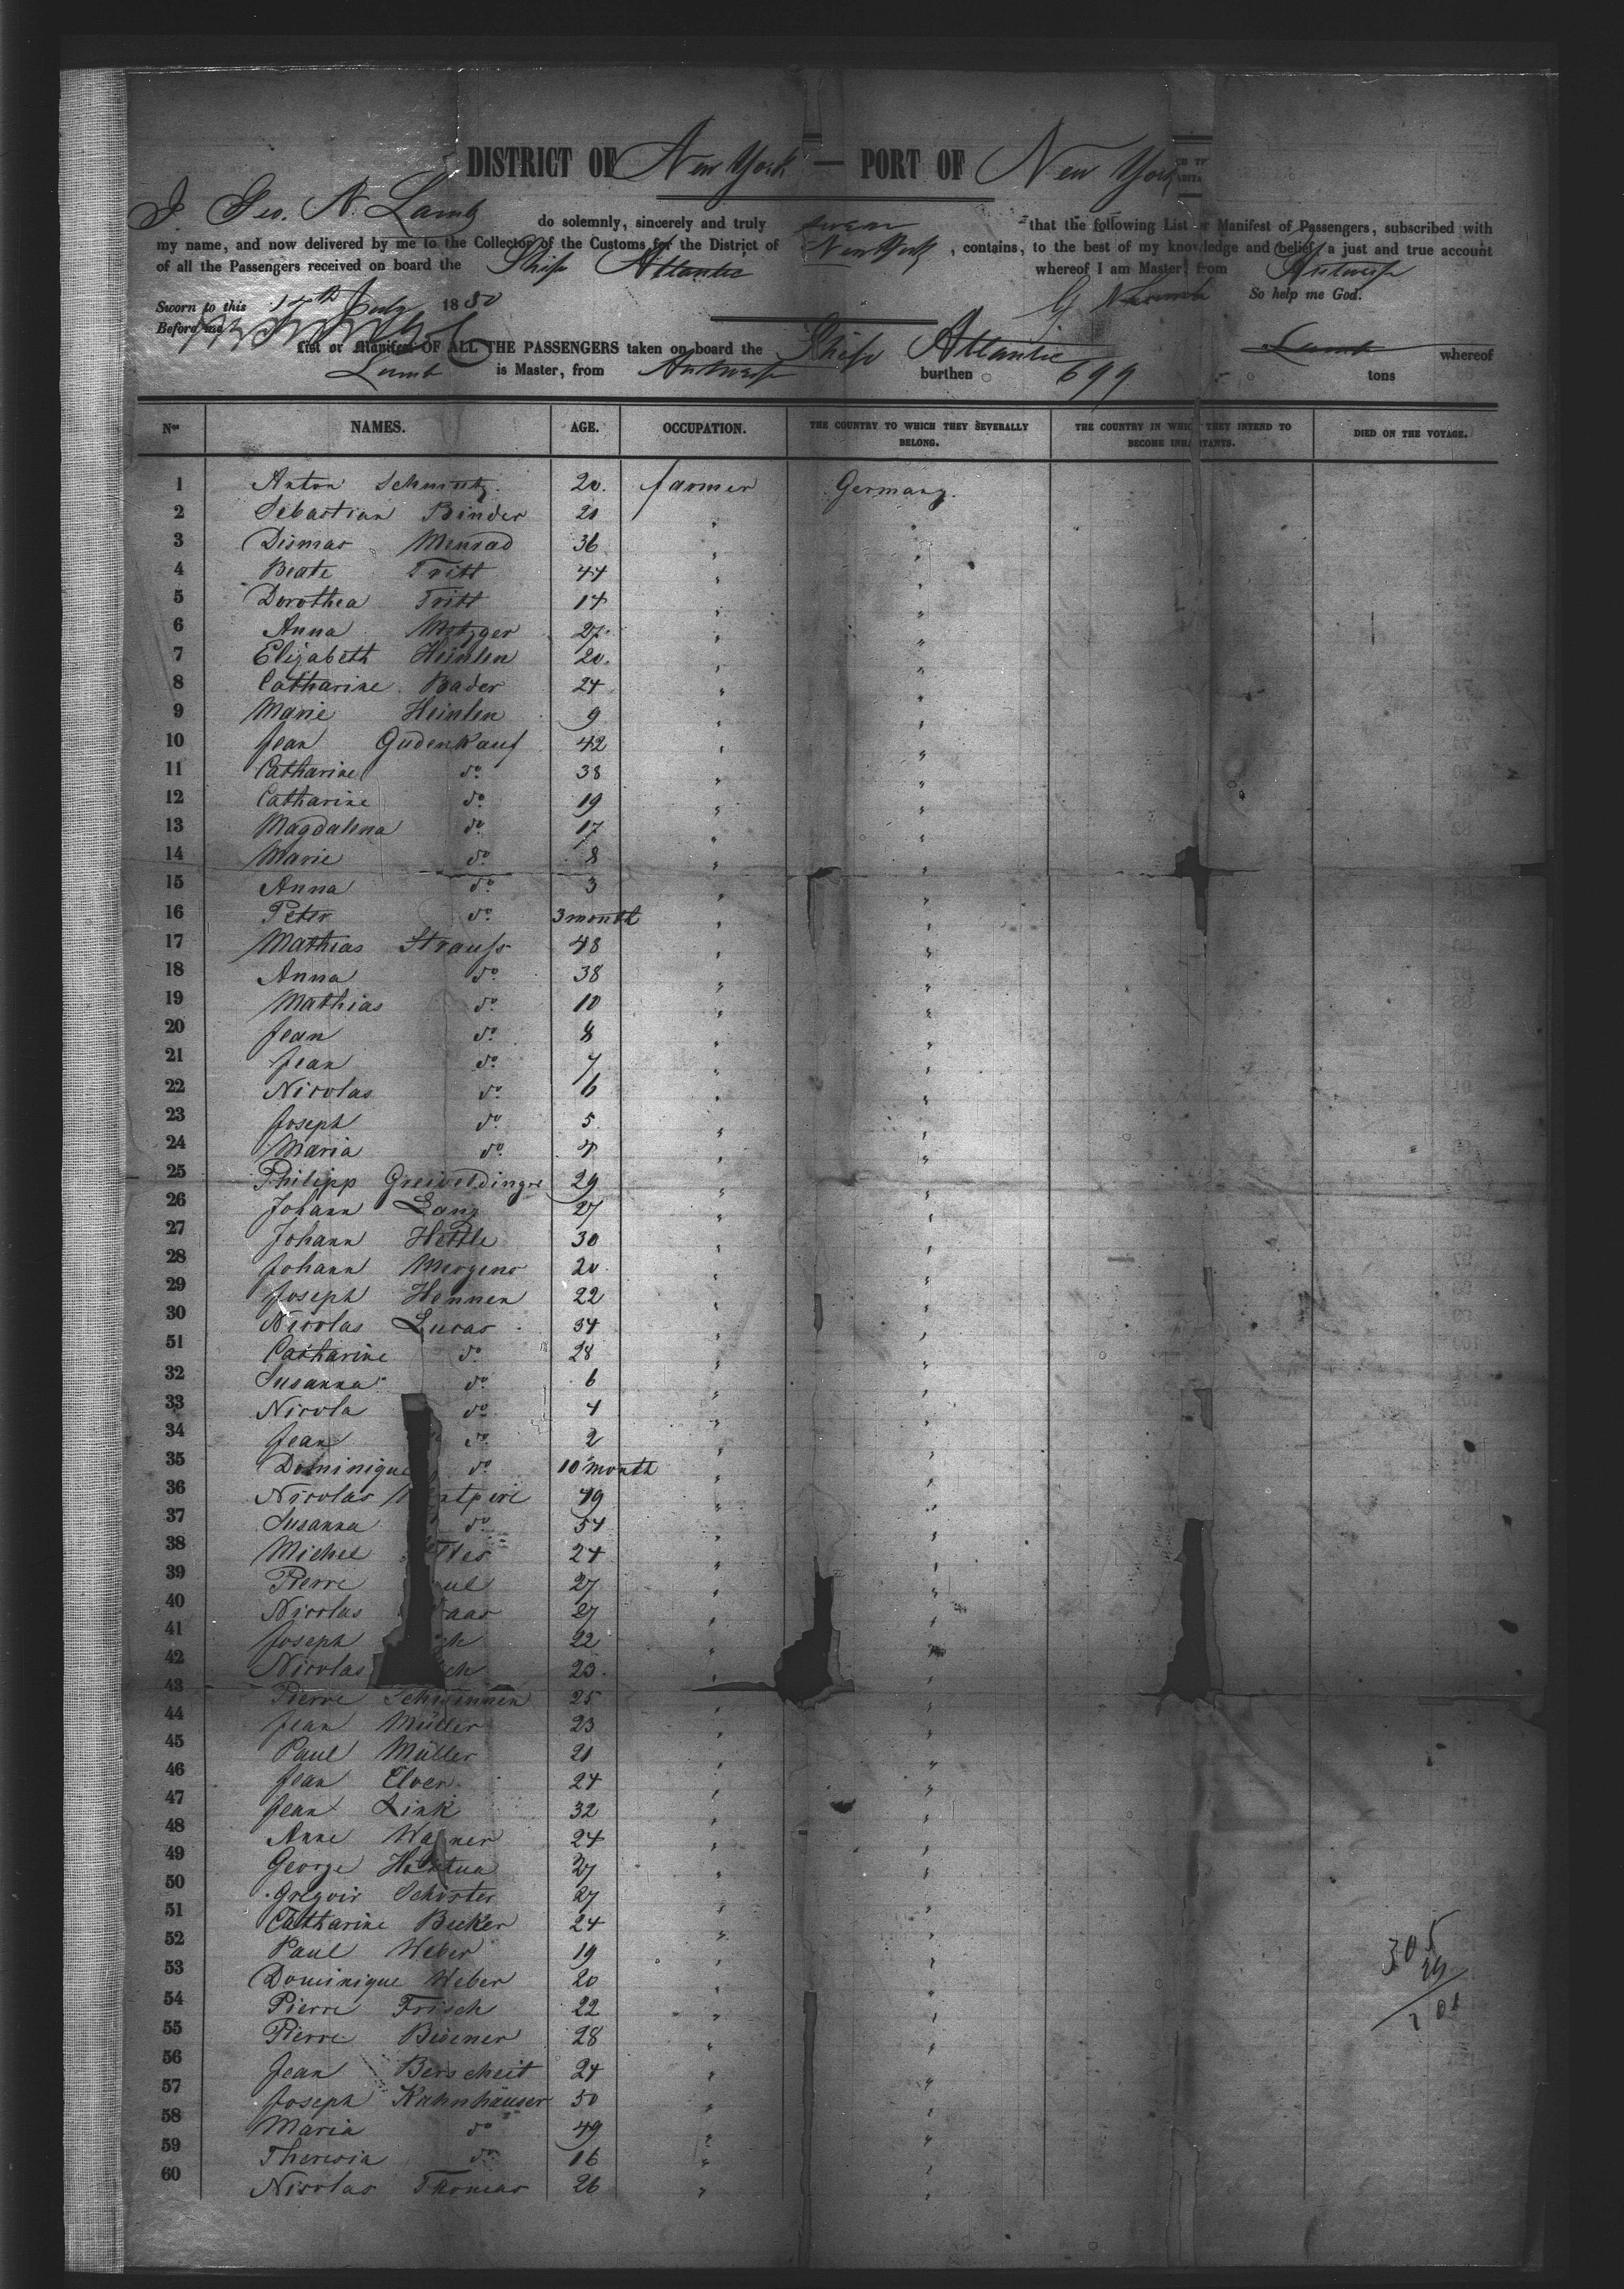 DISTRICT OF New York — PORT OF New York
I Geo. N. Lamb do solemnly, sincerely and truly swear that the following List or Manifest of Passengers, subscribed with
my name, and now delivered by me to the Collector of the Customs for the District of New York, contains, to the best of my knowledge and belief, a just and true account
of all the Passengers received on board the Ship Atlantic whereof I am Master, from Antwerp
Sworn to this 17th July 1850 G N Lamb So help me God.
Before me
List or Manifest OF ALL THE PASSENGERS taken on board the Ship Atlantic Lamb whereof
Lamb is Master, from Antwerp burthen 699 tons
Nos NAMES. AGE. OCCUPATION. THE COUNTRY TO WHICH THEY SEVERALLY BELONG. THE COUNTRY IN WHICH THEY INTEND TO BECOME INHABITANTS. DIED ON THE VOYAGE.
1 Anton 20. farmer Germany.
2 Sebastian Binder 21 " "
3 Dismas Menrad 36 " "
4 Beate Tritt 44 " "
5 Dorothea Tritt 14 " "
6 Anna Metzger 27 " "
7 Elizabeth Heinlen 20. " "
8 Catharine Bader 24 " "
9 Marie Heinlen 9 " "
10 Jean Gudenkauf 42 " "
11 Catharine do 38 " "
12 Catharine do 19 " "
13 Magdalena do 17 " "
14 Marie do 8 " "
15 Anna do 3 " "
16 Peter do 3 month " "
17 Mathias Strauss 48 " "
18 Anna do 38 " "
19 Mathias do 10 " "
20 Jean do 8 " "
21 Jean do 7 " "
22 Nicolas do 6 " "
23 Joseph do 5 " "
24 Maria do 4 " "
25 Philipp Greiveldinger 29 " "
26 Johann Lang 27 " "
27 Johann Hettle 30 " "
28 Johann Mergens 20 " "
29 Joseph Hennen 22 " "
30 Nicolas Lucas 34 " "
51 Catharine do 28 " "
32 Susanna do 6 " "
33 Nicola do 4 " "
34 Jean do 2 " "
35 Dominique do 10 month " "
36 Nicolas 49 " "
37 Susanna do 54 " "
38 Michel 24 " "
39 Pierre 27 " "
40 Nicolas 27 " "
41 Joseph 22 " "
42 Nicolas 23 " "
43 Pierre Schwinnen 25 " "
44 Jean Müller 23 " "
45 Paul Müller 21 " "
46 Jean Elver 24 " "
47 Jean Link 32 " "
48 Anne Wagner 24 " "
49 George 37 " "
50 Gregoir Schister 27 " "
51 Catharine Becker 24 " "
52 Paul Weber 19 " "
53 Dominique Weber 20 " "
54 Pierre Frisch 22 " "
55 Pierre Biwener 28 " "
56 Jean Berscheit 24 " "
57 Joseph Kahnhäuser 50 " "
58 Maria do 49 " "
59 Theresia do 16 " "
60 Nicolas Thomas 26 " "
305